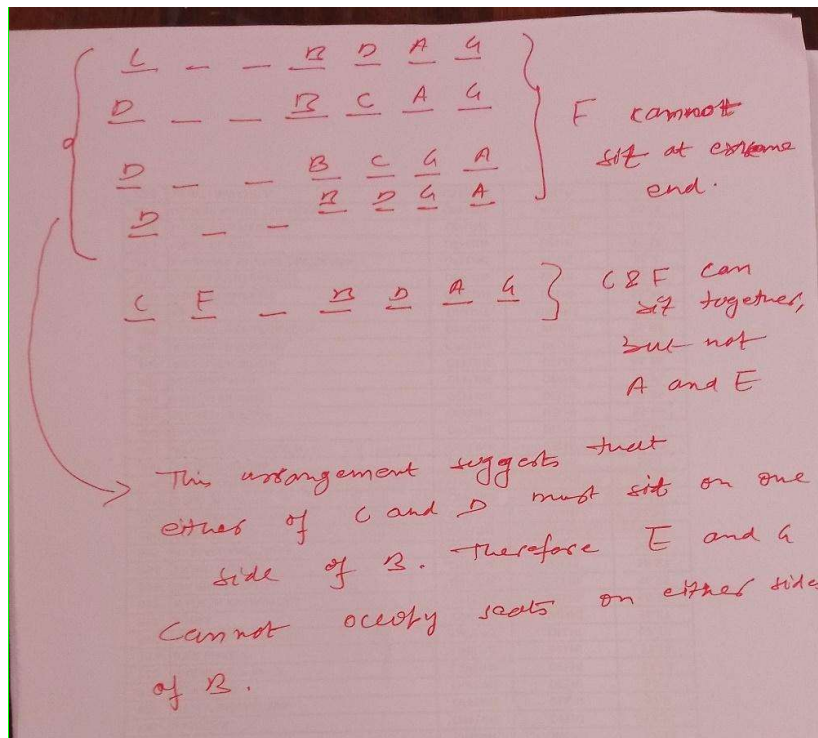 C _ _ B D A G
D _ _ B C A G
D _ _ B C G A
D _ _ B D G A
F cannot
sit at extreme
end.
C F _ B D A G
C & F can
sit together,
but not
A and E
This arrangement suggests that
either of C and D must sit on one
side of B. Therefore E and G
Cannot occupy seats on either sides
of B.